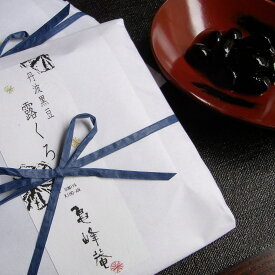 丹波黒豆
露くろ
亀峰菴